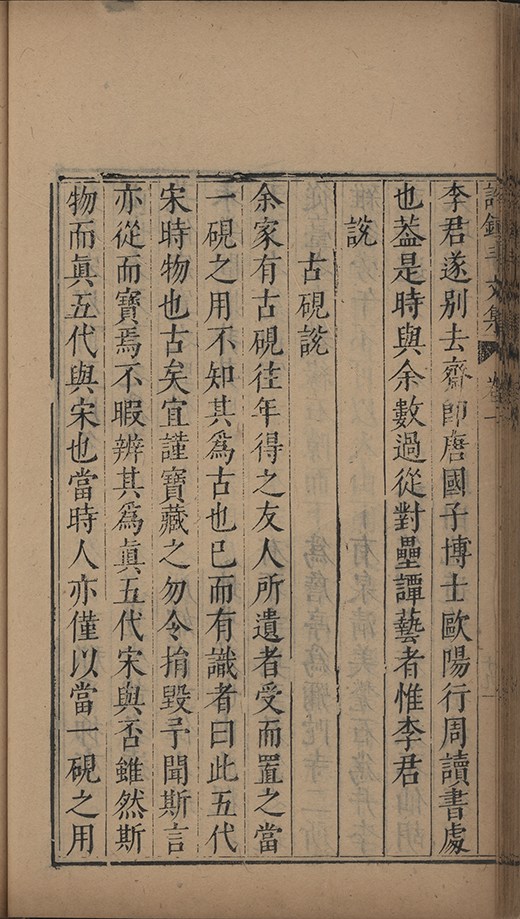 李君遂别去齋卽唐國子博士歐陽行周讀書處
也葢是時與余數過從對壘譚藝者惟李君
説
古硯説
余家有古硯往年得之友人所遺者受而置之當
一硯之用不知其爲古也已而有識者曰此五代
宋時物也古矣宜謹寳藏之勿令捐毀予聞斯言
亦從而寳焉不暇辨其爲眞五代宋與否雖然斯
物而眞五代與宋也當時人亦僅以當一硯之用